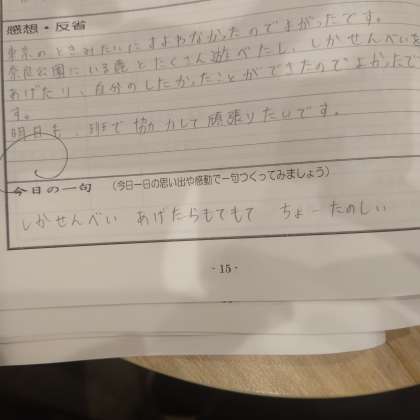 感想・反省
東京のときみたいにすよやなかったのでよかったです。
奈良公園にいる鹿とたくさん遊べたし、しかせんべいを
あげたり、自分のしたかったことができたのでよかったで
す。
明日も、班で協力して頑張りたいです。
今日の一句 (今日一日の思い出や感動で一句つくってみましょう)
しかせんべい あげたらもてもて ちょーたのしい
- 15 -